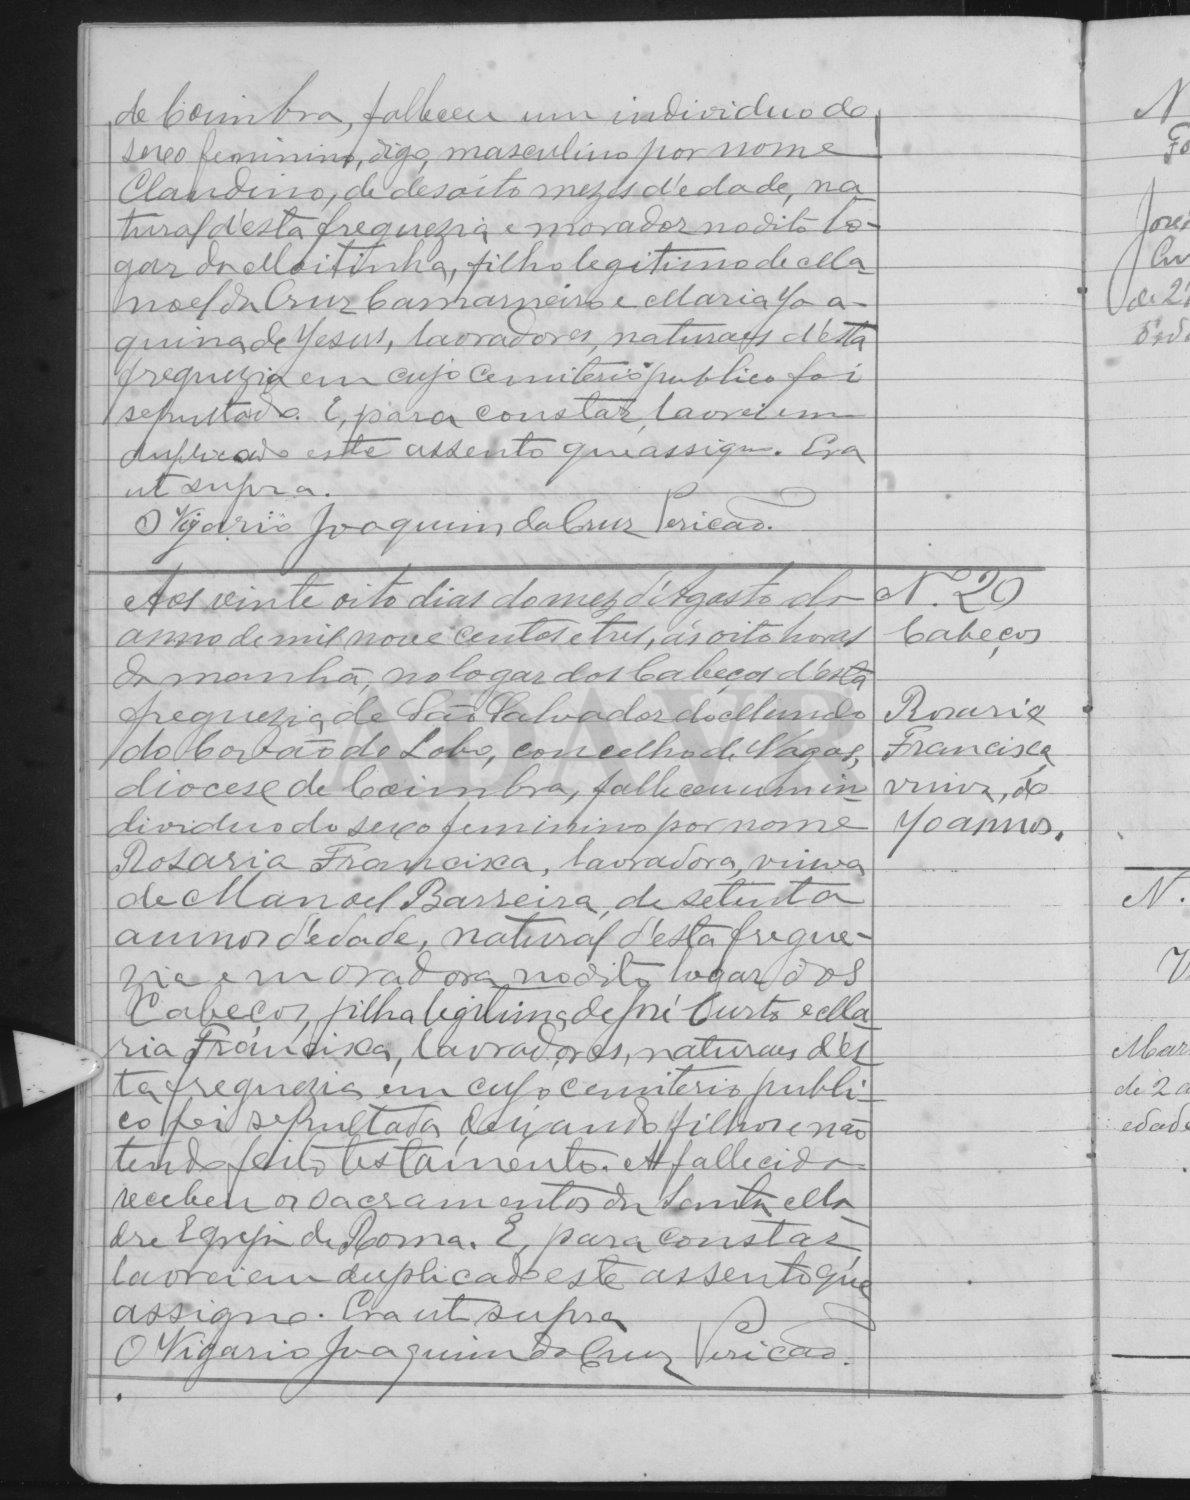 de Coimbra, falleceu um individuo do
sexo feminino, digo, masculino por nome
Claudino, de desoito mezes d'edade, na
tural d'esta freguezia e morador no dito lo-
gar da Moitinha, filho legitimo de Ma
noel da Cruz Camarneiro e Maria Joa-
quina de Jesus, lavradores, naturaes d'esta
freguezia em cujo cemiterio publico foi
sepultado. E, para constar, lavrei em
duplicado este assento que assigno. Era
ut supra.
O Vigario Joaquim da Cruz Pericão.
Aos vinte oito dias do mez d'Agosto do
anno de mil nove centos e tres, ás oito horas
da manhã, no logar dos Cabeços d'esta
freguezia de São Salvador do Mundo
do Covão do Lobo, concelho de Vagos,
diocese de Coimbra, falleceu um in
dividuo do sexo feminino por nome
Rosaria Francisca, lavradora, viuva
de Manoel Barreira, de setenta
annos d'edade, natural d'esta fregue-
zia e moradora no dito logar dos
Cabeços, filha legitima de José Curto e Ma
ria Francisca, lavradores, naturaes d'es
ta freguezia em cujo cemiterio publi-
co foi sepultada, deixando filhos e não
tendo feito testamento. A fallecida
recebeu os sacramentos da Santa Ma
dre Egreja de Roma. E, para constar,
lavrei em duplicado este assento que
assigno. Era ut supra
O Vigario Joaquim da Cruz Pericão.
N. 20
Cabeços
Rosaria
Francisca
viuva, de
70 annos.
ADAVR
N
José
de 2
N.
V
Mar
de 2 a
edade